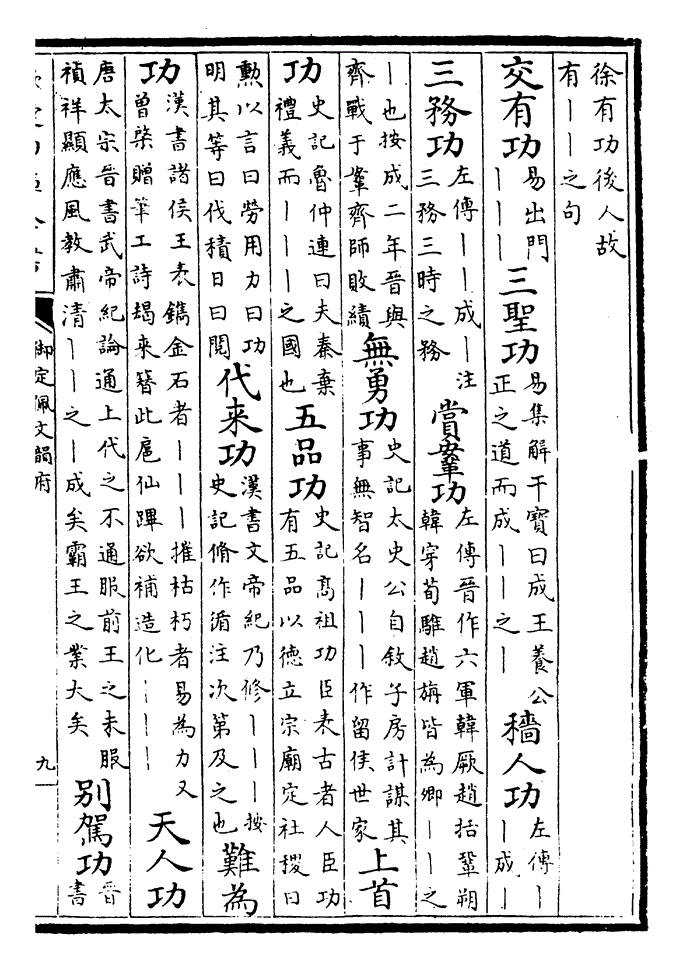 徐有功後人故
有丨丨之句
交有功易出門
丨丨丨三聖功易集解干寶曰成王養公
正之道而成丨丨之丨穡人功左傳丨
丨成丨
三務功左傳丨丨成丨注
三務三時之務賞鞏功左傳晉作六軍韓厥趙括鞏朔
韓穿荀騅趙旃皆為卿丨丨之
丨也按成二年晉與
齊戰于鞏齊師敗績無勇功史記太史公自敘子房計謀其
事無智名丨丨丨作留侯世家上首
功史記魯仲連曰夫秦棄
禮義而丨丨丨之國也五品功史記高祖功臣表古者人臣功
有五品以德立宗廟定社稷曰
勳以言曰勞用力曰功
明其等曰伐積日曰閱代来功漢書文帝紀乃修丨丨丨按
史記脩作循注次第及之也難為
功漢書諸侯王表鐫金石者丨丨丨摧枯朽者易為力又
曾棨贈筆工詩朅来簪此扈仙蹕欲補造化丨丨丨天人功
唐太宗晉書武帝紀論通上代之不通服前王之未服
禎祥顯應風教肅清丨丨之丨成矣霸王之業大矣別駕功晉
書
御定佩文韻府
九